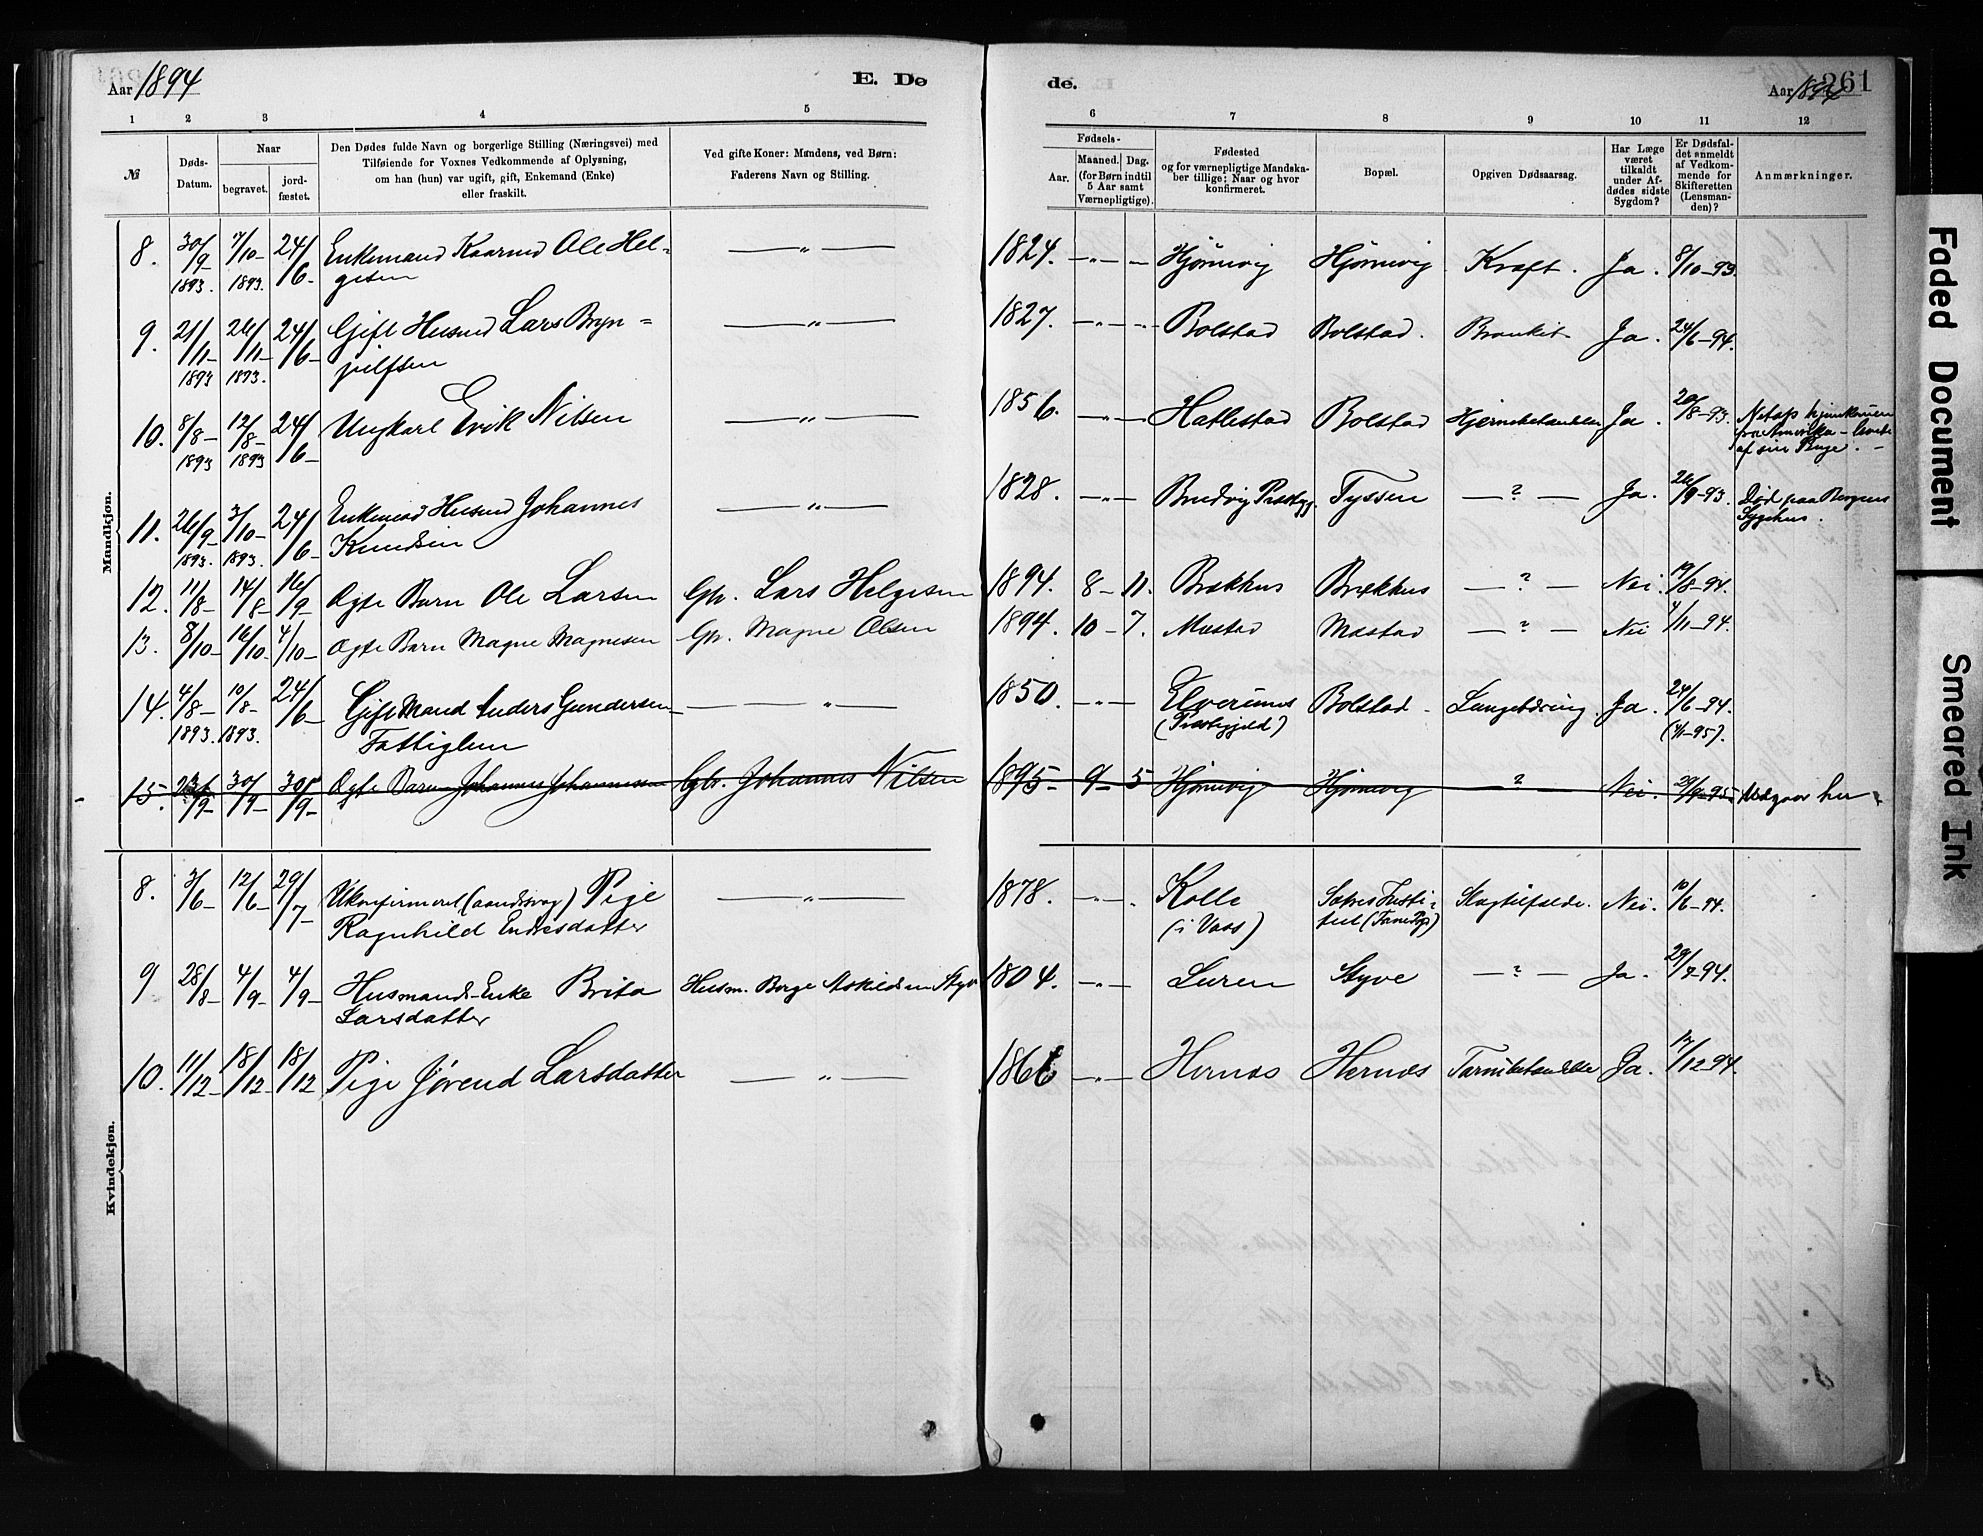 Aar 1894
E. Dø
de.
Aar 1894
261
1 2 3 4 5 6 7 8 9 10 11 12
№
Døds-
Datum.
Naar
begravet.
jord-
fæstet.
Den Dødes fulde Navn og borgerlige Stilling (Næringsvei) med
Tilføiende for Voxnes Vedkommende af Oplysning,
om han (hun) var ugift, gift, Enkemand (Enke)
eller fraskilt.
Ved gifte Koner: Mandens, ved Børn:
Faderens Navn og Stilling.
Fødsels-
Aar.
Maaned. Dag.
(for Børn indtil
5 Aar samt
Værnepligtige).
Fødested
og for værnepligtige Mandska-
ber tillige: Naar og hvor
konfirmeret.
Bopæl.
Opgiven Dødsaarsag.
Har Læge
været
tilkaldt
under Af-
dødes sidste
Sygdom?
Er Dødsfal-
det anmeldt
af Vedkom-
mende for
Skifteretten
(Lensman-
den)?
Anmærkninger.
Mandkjøn.
8. 30/9- 1893. 7/10- 1893. 24/6- Enkemand Kaarmd Ole Hel-
gesen — " — 1824. — " — Hjørnevig Hjørnevig Kræft. Ja. 8/10-93.
9. 21/11- 1893 26/11- 1893. 24/6- Gift Husmd Lars Bryn=
julfsen — " — 1827. — " — Bolstad Bolstad. Bronkit. Ja. 24/6-94.
10. 8/8- 1893 12/8- 1893 24/6- Ungkarl Erik Nilsen — " — 1856. — " — Hatlestad Bolstad Hjernebetændelse Ja. 20/8-93. Netop hjemkommen
fra Amerika - levede
af sine Penge. -
11. 26/9- 1893. 3/10- 1893. 24/6- Enkemad Husmd Johannes
Knudsen — " — 1828. — " — Bruvig Præstegj. Tyssen — ? — Ja. 26/9-93. Død paa Bergens
Sygehus.
12. 11/8- 14/8- 16/9- Ægte Barn Ole Larsen Gb. Lars Helgesen 1894. 8- 11. Brækhus Brækhus — ? — Nei. 17/8-94.
13. 8/10- 16/10- 4/10- Ægte Barn Magne Magnesen Gb. Magne Olsen 1894. 10- 7. Mæstad Mæstad — ? — Nei 4/11-94.
14. 4/8- 1893. 10/8- 1893. 24/6- Gift Mand Anders Gundersen
Fattiglem — " — 1850. — " — Elverums
(Præstegjeld) Bolstad - Lungetæring Ja. 24/6-94.
(4/1-95).
15. 23/9- 30/9- 30/9- Ægte Barn Johannes Johannesen Gb. Johannes Nilsen 1895- 9- 5 Hjørnevig Hjørnevig ? Nei. 29/9-95 Udgaar her
Kvindekjøn.
8. 3/6- 12/6- 29/7- Ukonfirmeret (aandssvag) Pige
Ragnhild Endresdatter — " — 1878. — " — Kolle
(i Voss) Sofies Insti-
tut (Tanedrp) Slagtilfælde. Nei. 10/6-94.
9 28/8- 4/9- 4/9- Husmands-Enke Brita
Larsdatter Husm. Børge Askildsen Styve 1804. — " — Luren Styve — ? — Ja. 29/7-94.
10. 11/12- 18/12- 18/12 Pige Jørend Larsdatter — " — 1866 — " — Hernæs Hernæs Tarmbetændelse Ja. 17/12-94.
Faded Document
Smeared Ink